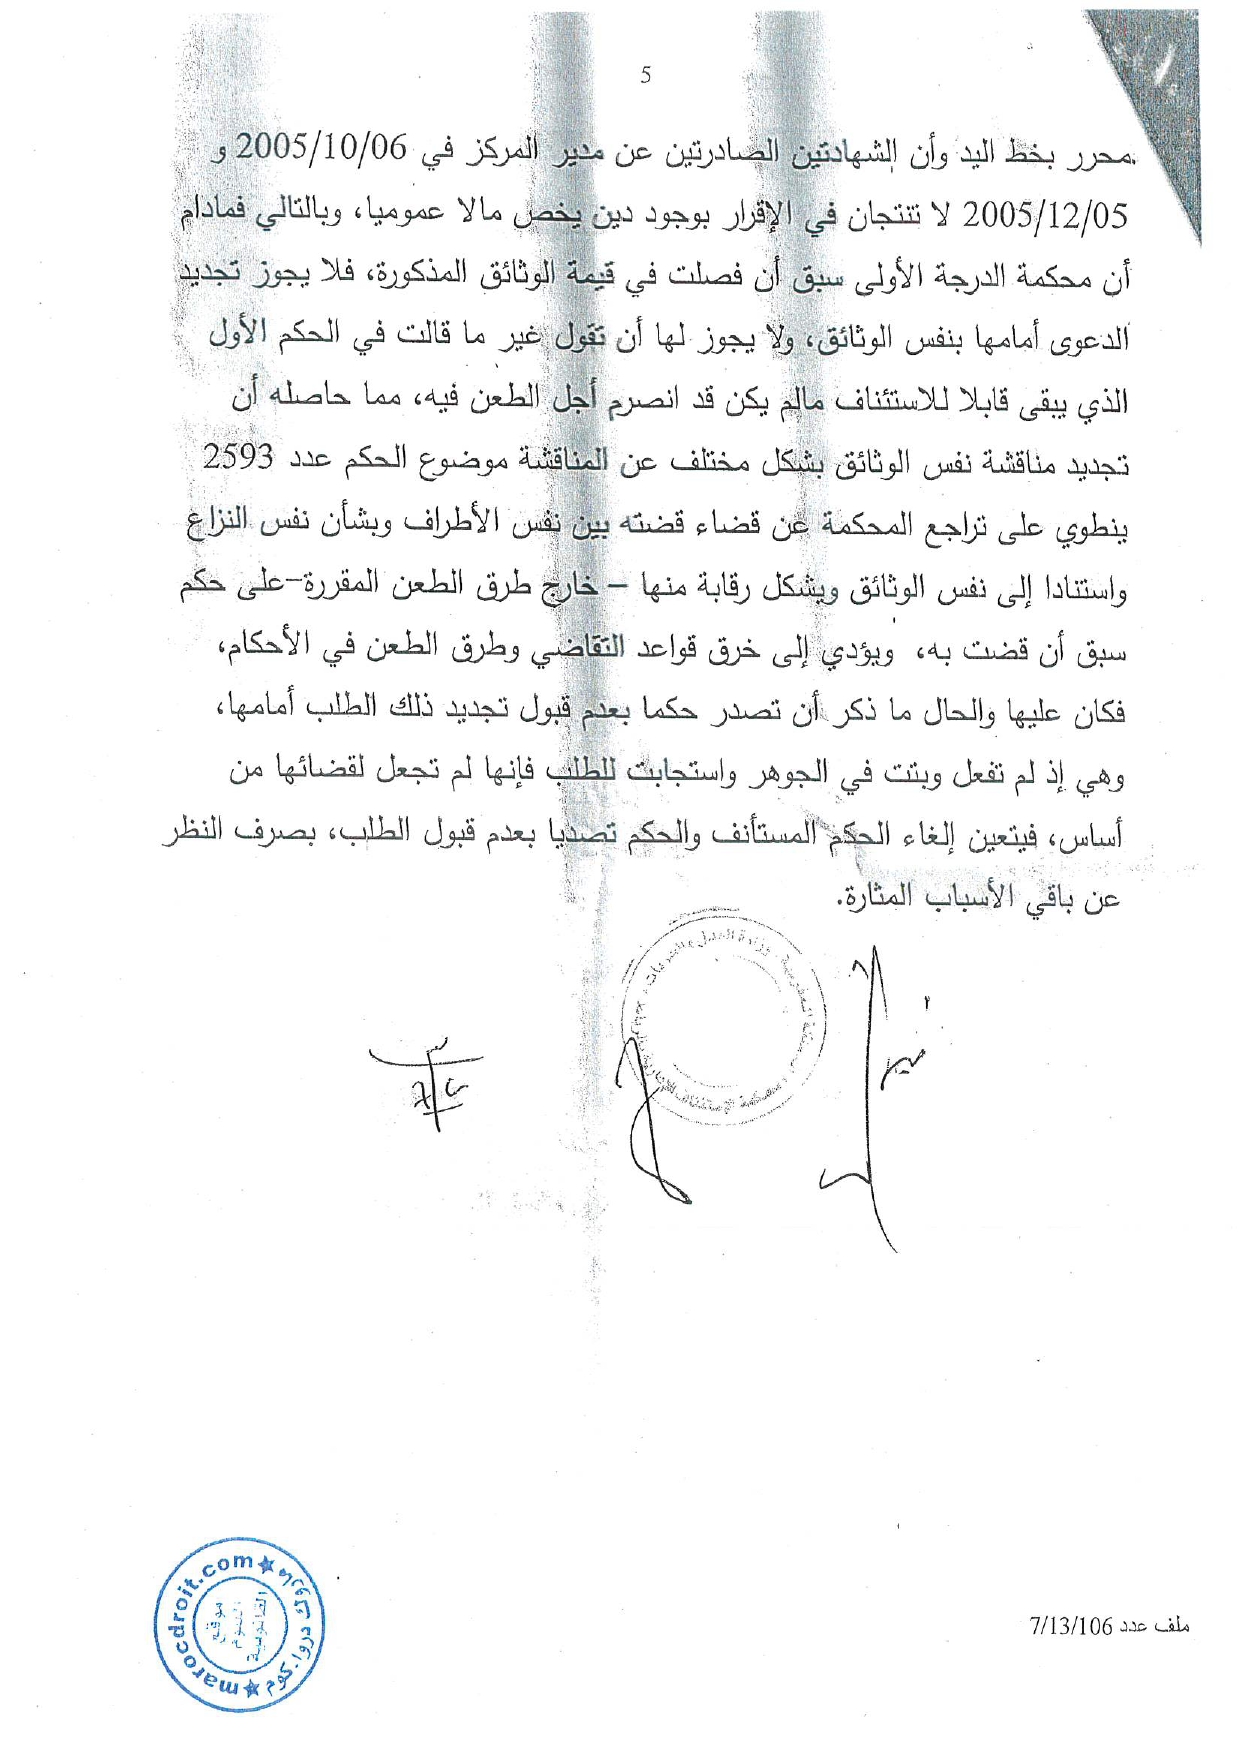 5
محرر بخط اليد وأن الشهادتين الصادرتين عن مدير المركز في 2005/10/06 و
2005/12/05 لا تنتجان في الإقرار بوجود دين يخص مالا عموميا، وبالتالي فمادام
أن محكمة الدرجة الأولى سبق أن فصلت في قيمة الوثائق المذكورة، فلا يجوز تجديد
الدعوى أمامها بنفس الوثائق، ولا يجوز لها أن تقول غير ما قالت في الحكم الأول
الذي يبقى قابلا للاستئناف مالم يكن قد انصرم أجل الطعن فيه، مما حاصله أن
تجديد مناقشة نفس الوثائق بشكل مختلف عن المناقشة موضوع الحكم عدد 2593
ينطوي على تراجع المحكمة عن قضاء قضته بين نفس الأطراف وبشأن نفس النزاع
واستنادا إلى نفس الوثائق ويشكل رقابة منها – خارج طرق الطعن المقررة–على حكم
سبق أن قضت به، ويؤدي إلى خرق قواعد التقاضي وطرق الطعن في الأحكام،
فكان عليها والحال ما ذكر أن تصدر حكما بعدم قبول تجديد ذلك الطلب أمامها،
وهي إذ لم تفعل وبتت في الجوهر واستجابت للطلب فإنها لم تجعل لقضائها من
أساس، فيتعين إلغاء الحكم المستأنف والحكم تصديا بعدم قبول الطلب، بصرف النظر
عن باقي الأسباب المثارة.
وزارة العدل والحريات
ملف عدد 7/13/106
marocdroit.com
موقع
العلوم
القانونية